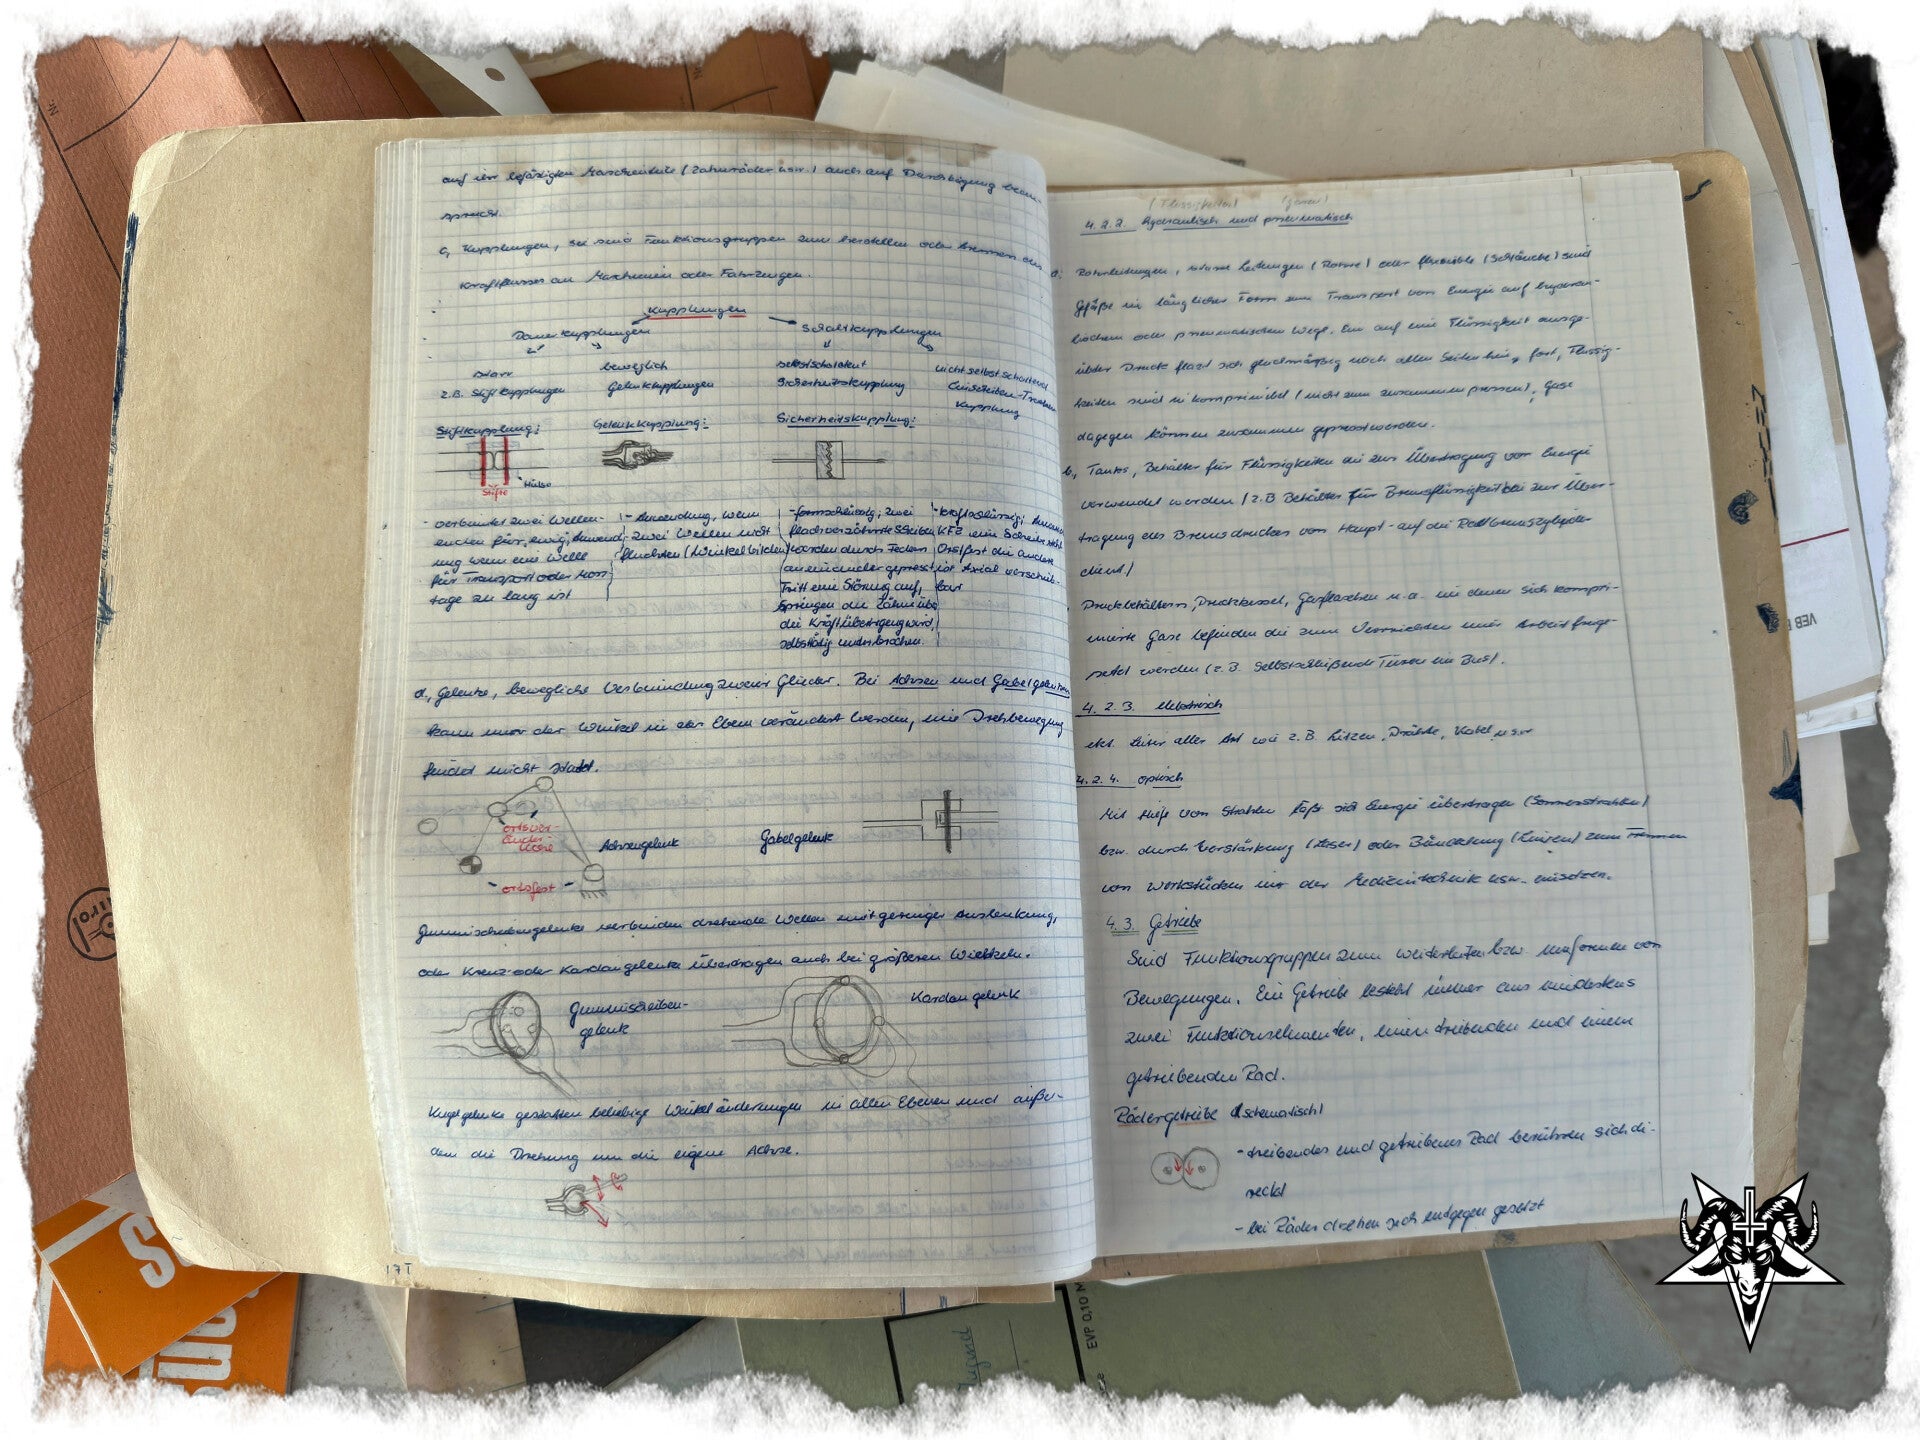 auf ihr befestigten Maschinenteile (Zahnräder usw.) auch auf Durchbiegung bean-
sprucht.
c, Kupplungen, sie sind Funktionsgruppen zum herstellen oder trennen des
Kraftflusses an Maschinen oder Fahrzeugen.
Kupplungen
Dauerkupplungen
Schaltkupplungen
starr
beweglich
selbstschaltent
nicht selbst schaltend
z.B. Stiftkupplungen
Gelenkkupplungen
Sicherheitskupplung
Einscheiben-Trocken
kupplung
Stiftkupplung:
Gelenkkupplung:
Sicherheitskupplung:
Stifte
Hülse
- verbindet zwei Wellen-
enden für ewig, Anwend
ung wenn eine Welle
für Transport oder Mon
tage zu lang ist
- Anwendung, wenn
zwei Wellen nicht
fluchten (Winkel bilden)
- formschlüssig, zwei
flachverzahnte Scheiben
werden durch Federn
aneinander gepresst
Tritt eine Störung auf,
springen die Zähne über
die Kraftübertragung wird
selbstätig unterbrochen.
- kraftschlüssig;
KFZ eine Scheibe ist
Ortsfest die andere
ist Axial verschieb-
bar
d, Gelenke, bewegliche Verbindung zweier Glieder. Bei Achsen und Gabelgelenken
kann nur der Winkel in der Ebene verändert werden, eine Drehbewegung
findet nicht statt.
ortsver-
änder-
liche
Achsengelenk
Gabelgelenk
ortsfest
Gummischeibengelenke verbinden drehende Wellen mit geringer Auslenkung,
oder Kreuz- oder Kardangelenke übertragen auch bei größeren Winkeln.
Gummischeiben-
gelenk
Kardangelenk
Kugelgelenke gestatten beliebige Winkeländerungen in allen Ebenen und außer-
dem die Drehung um die eigene Achse.
17I
(Flüssigkeiten) (Gasen)
4.2.2. hydraulisch und pneumatisch
a, Rohrleitungen, starre Leitungen (Rohre) oder flexible (Schläuche) sind
Gefäße in länglicher Form zum Transport von Energie auf hydrau-
lischem oder pneumatischen Wege. Ein auf eine Flüssigkeit ausge-
übter Druck pflanzt sich gleichmäßig nach allen Seiten hin fort, Flüssig-
keiten sind inkompriemibel (nicht zum zusammen pressen), Gase
dagegen können zusammen gepresst werden.
b, Tanks, Behälter für Flüssigkeiten die zur Übertragung von Energie
verwendet werden (z.B Behälter für Bremsflüssigkeit die zur Über-
tragung des Bremsdruckes vom Haupt- auf die Radbremszylinder
dient.)
Druckbehältern, Druckkessel, Gasflaschen u.a. in denen sich kompri-
mierte Gase befinden die zum Verrichten einer Arbeit freige-
setzt werden (z.B. Selbstschließende Türen im Bus).
4.2.3. elektrisch
elkt. Leiter aller Art wie z.B. Litzen, Drähte, Kabel usw
4.2.4. optisch
Mit Hilfe von Strahlen läßt sich Energie übertragen (Sonnenstrahlen)
bzw. durch Verstärkung (Laser) oder Bündelung (Linsen) zum Trennen
von Werkstücken in der Medizintechnik usw. einsetzen.
4.3. Getriebe
Sind Funktionsgruppen zum weiterleiten bzw. umformen von
Bewegungen. Ein Getriebe besteht immer aus mindestens
zwei Funktionselementen, einen treibenden und einem
getriebenden Rad.
Rädergetriebe (schematisch)
- treibendes und getriebenes Rad berühren sich di-
rekt
- bei Räder drehen sich entgegen gesetzt
VEB
EVP 0,10 M
Jugend